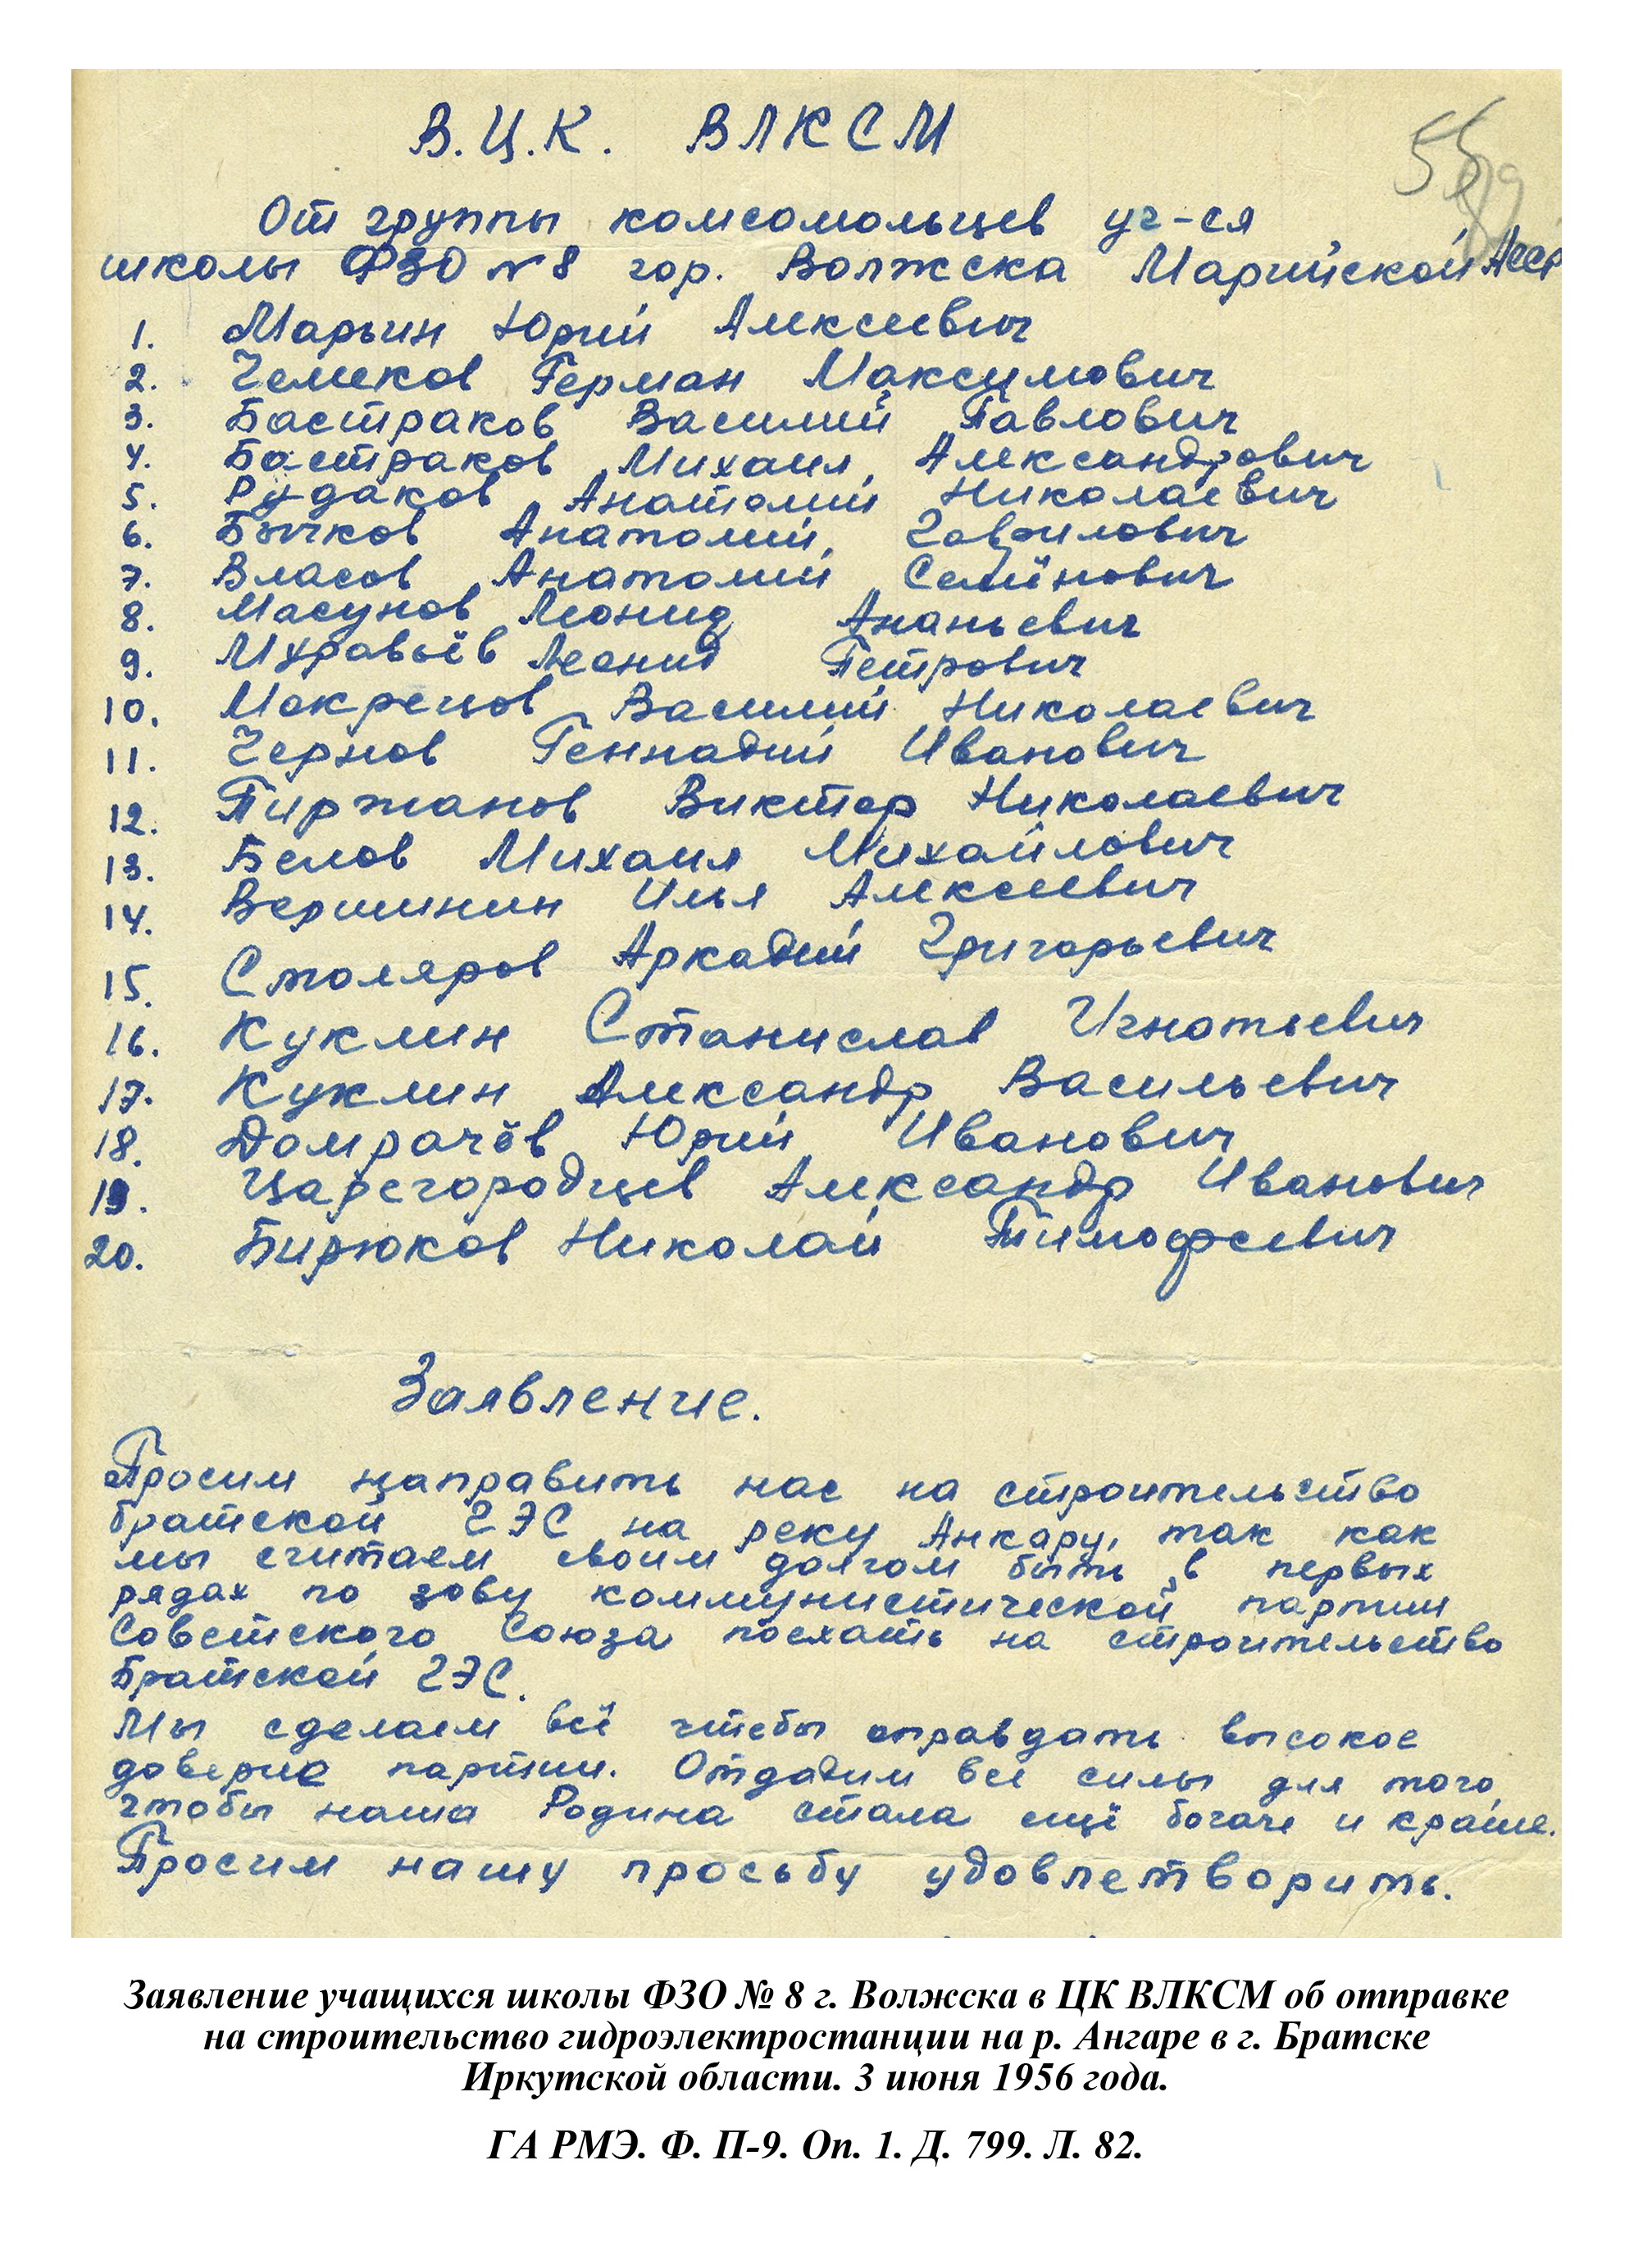 В.Ц.К. ВЛКСМ
55
От группы комсомольцев уч-ся
школы ФЗО №8 гор. Волжска Марийской АССР
1. Марьин Юрий Алексеевич
2. Чемеков Герман Максимович
3. Бастраков Василий Павлович
4. Бастраков Михаил Александрович
5. Рудаков Анатолий Николаевич
6. Бычков Анатолий Гаврилович
7. Власов Анатолий Семёнович
8. Масунов Леонид Ананьевич
9. Муравьёв Леонид Петрович
10. Мокрецов Василий Николаевич
11. Чернов Геннадий Иванович
12. Пиржанов Виктор Николаевич
13. Белов Михаил Михайлович
14. Вершинин Илья Алексеевич
15. Столяров Аркадий Григорьевич
16. Куклин Станислав Игнатьевич
17. Куклин Александр Васильевич
18. Домрачёв Юрий Иванович
19. Царегородцев Александр Иванович
20. Бирюков Николай Тимофеевич
Заявление.
Просим направить нас на строительство
братской ГЭС на реку Анкару, так как
мы считаем своим долгом быть в первых
рядах по зову коммунистической партии
Советского Союза поехать на строительство
Братской ГЭС.
Мы сделаем всё чтобы оправдать высокое
доверие партии. Отдадим все силы для того,
чтобы наша Родина стала ещё богаче и краше.
Просим нашу просьбу удовлетворить.
Заявление учащихся школы ФЗО № 8 г. Волжска в ЦК ВЛКСМ об отправке
на строительство гидроэлектростанции на р. Ангаре в г. Братске
Иркутской области. 3 июня 1956 года.
ГА РМЭ. Ф. П-9. Оп. 1. Д. 799. Л. 82.